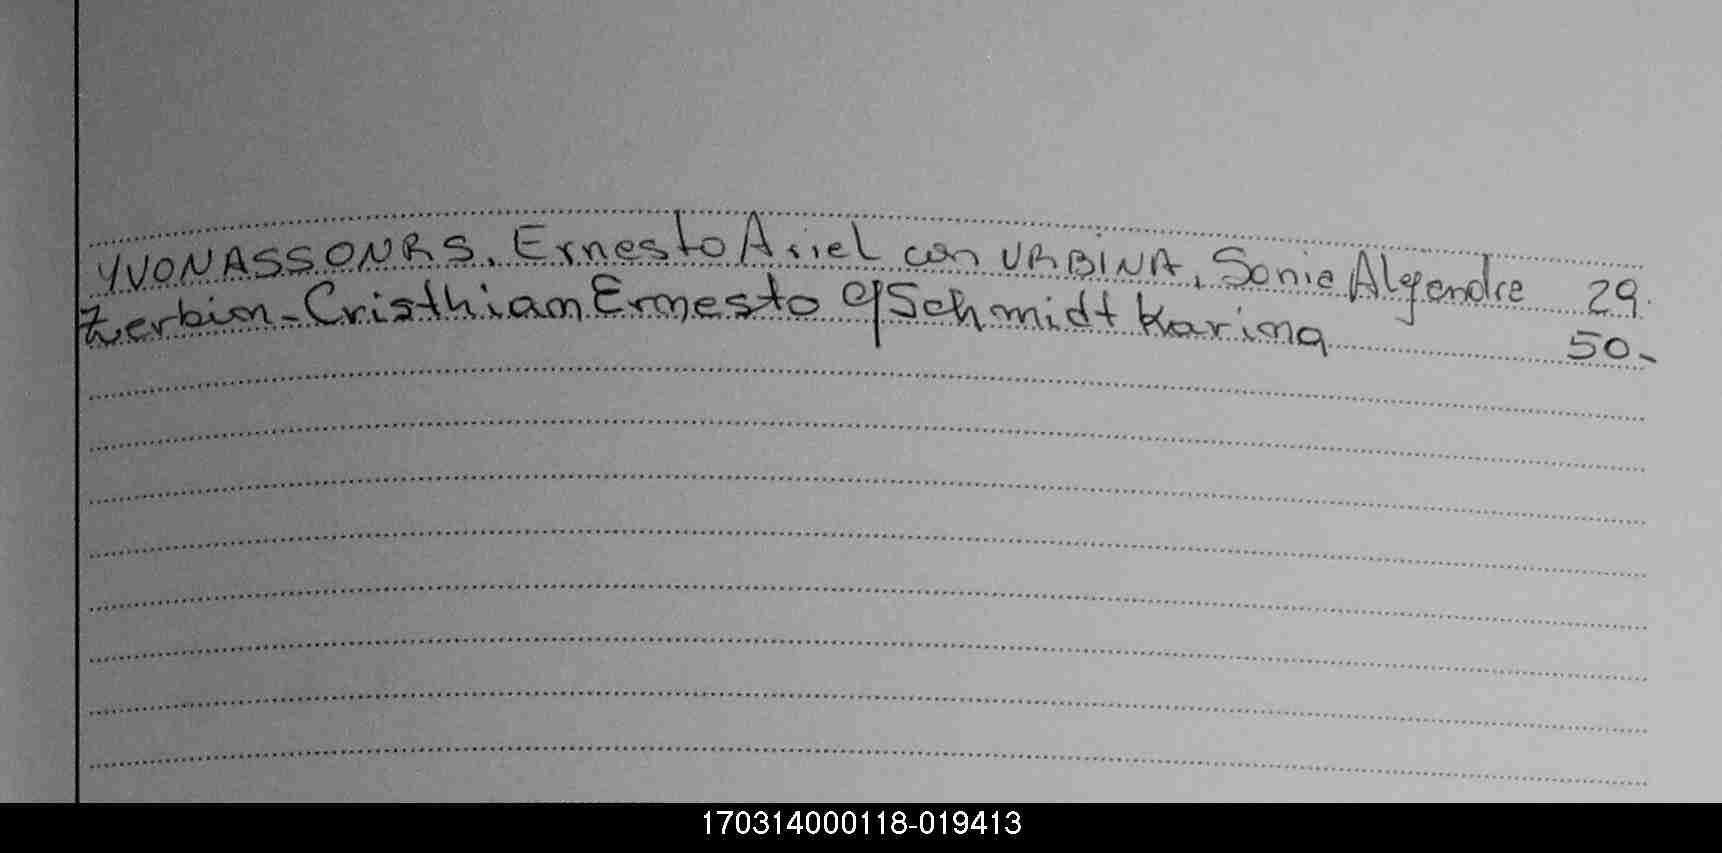 YVONASSONRS, Ernesto Ariel con URBINA, Sonia Alejandra 29.
Zerbin - Cristhian Ernesto c/ Schmidt Karina 50-
170314000118-019413